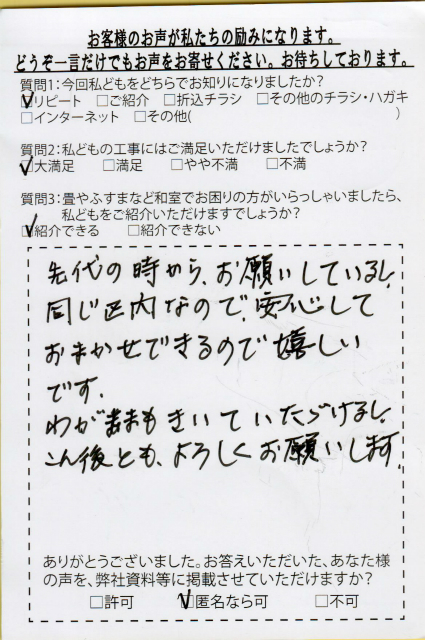 お客様のお声が私たちの励みになります。
どうぞ一言だけでもお声をお寄せください。お待ちしております。
質問1：今回私どもをどちらでお知りになりましたか？
☑リピート □ご紹介 □折込チラシ □その他のチラシ・ハガキ
□インターネット □その他( )
質問2：私どもの工事にはご満足いただけましたでしょうか？
☑大満足 □満足 □やや不満 □不満
質問3：畳やふすまなど和室でお困りの方がいらっしゃいましたら、
私どもをご紹介いただけますでしょうか？
☑紹介できる □紹介できない
先代の時から、お願いしているし、
同じ区内なので、安心して
おまかせできるので嬉しい
です。
わがままもきいていただけるし、
こん後とも、よろしくお願いします。
ありがとうございました。お答えいただいた、あなた様
の声を、弊社資料等に掲載させていただけますか？
□許可 ☑匿名なら可 □不可